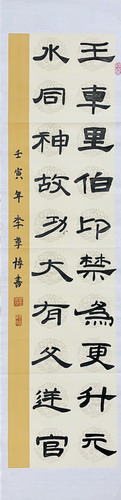 王車里伯印禁為更升元
水同神故功大有父送官
壬寅年李尊博書